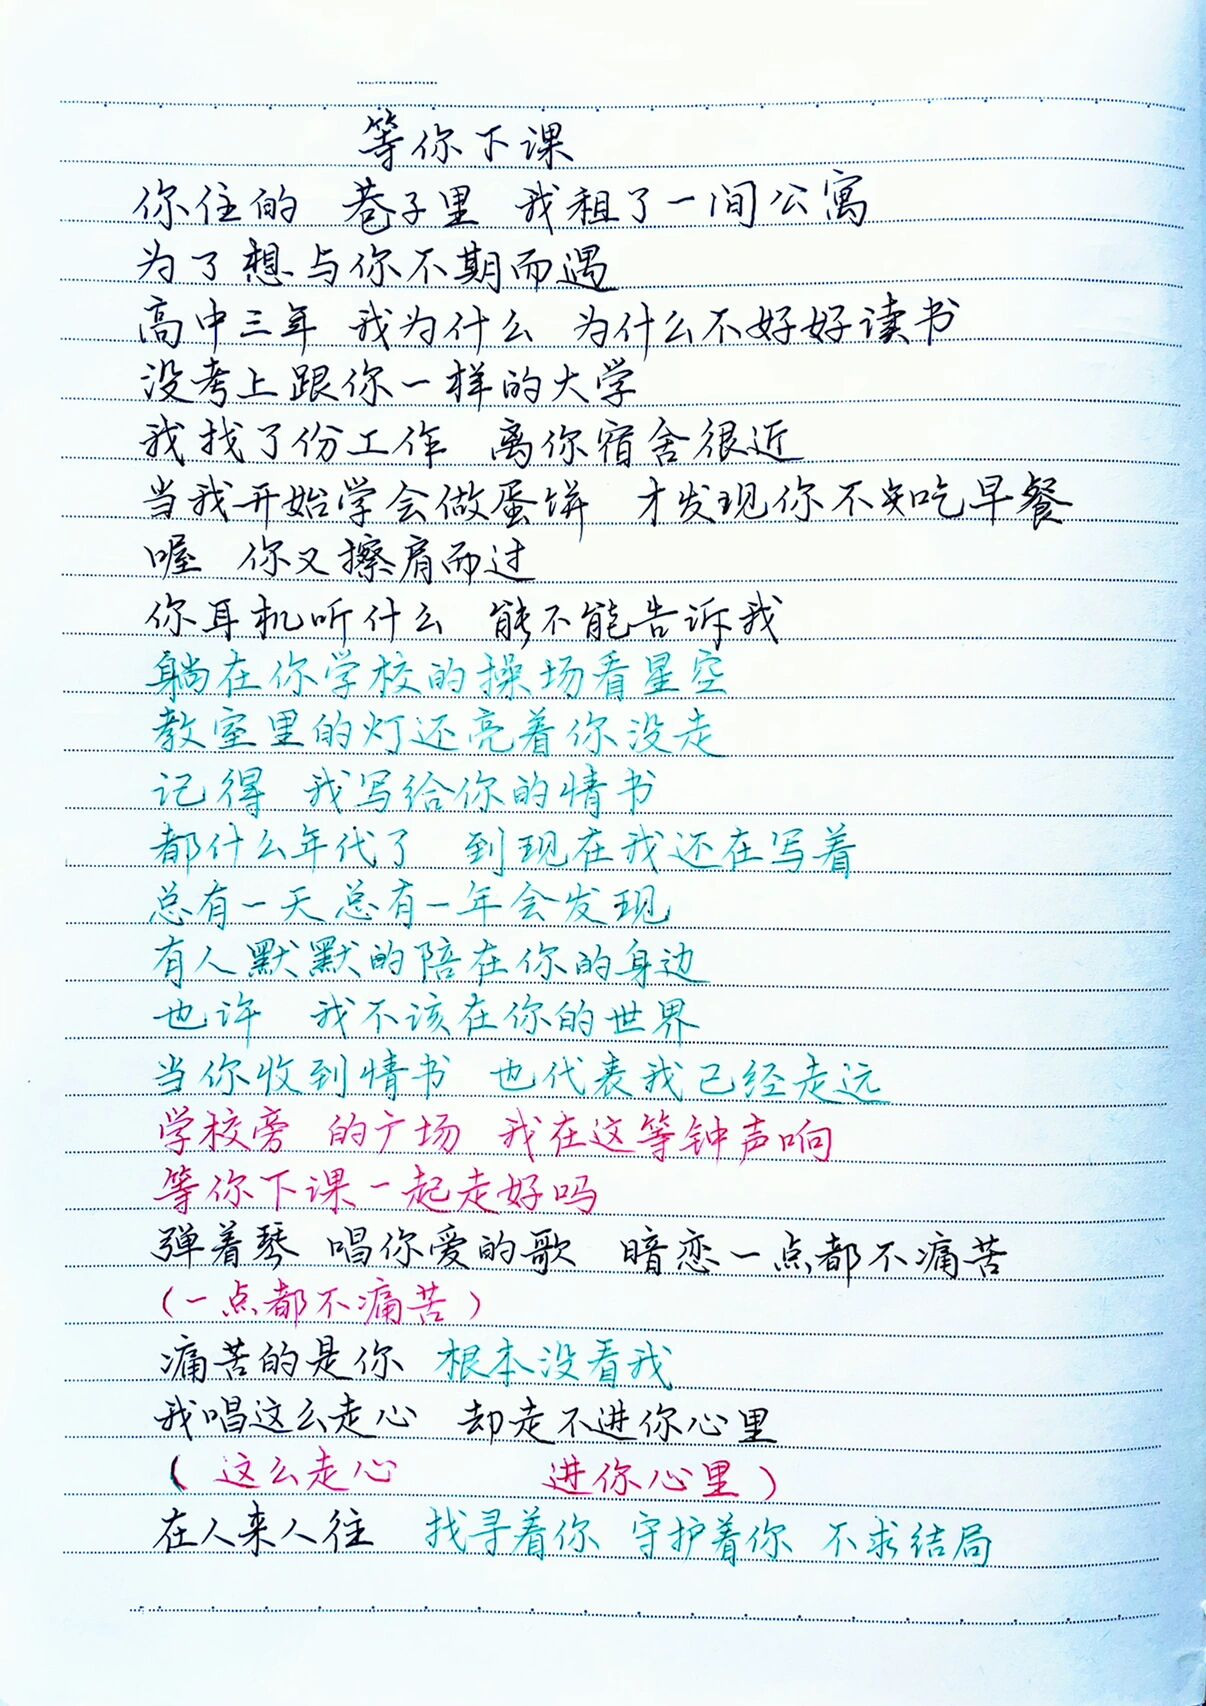 等你下课
你住的 巷子里 我租了一间公寓
为了想与你不期而遇
高中三年 我为什么 为什么不好好读书
没考上跟你一样的大学
我找了份工作 离你宿舍很近
当我开始学会做蛋饼 才发现你不知吃早餐
喔 你又擦肩而过
你耳机听什么 能不能告诉我
躺在你学校的操场看星空
教室里的灯还亮着你没走
记得 我写给你的情书
都什么年代了 到现在我还在写着
总有一天总有一年会发现
有人默默的陪在你的身边
也许 我不该在你的世界
当你收到情书 也代表我已经走远
学校旁 的广场 我在这等钟声响
等你下课一起走好吗
弹着琴 唱你爱的歌 暗恋一点都不痛苦
(一点都不痛苦)
痛苦的是你 根本没看我
我唱这么走心 却走不进你心里
( 这么走心 进你心里)
在人来人往 找寻着你 守护着你 不求结局